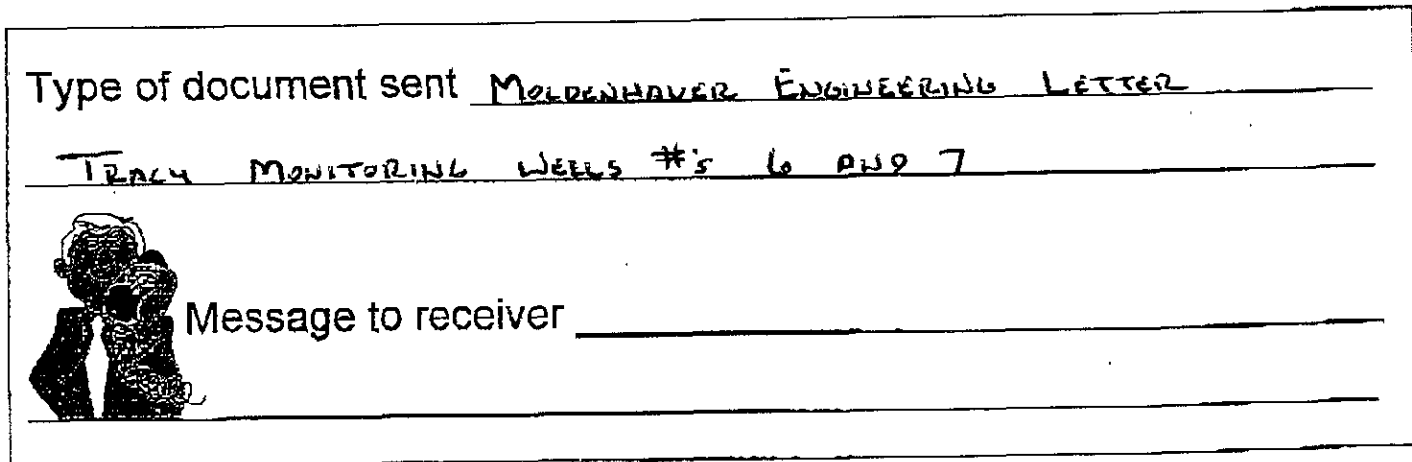 Type of document sent MOLDENHAUER ENGINEERING LETTER
TRACY MONITORING WELLS #'s 6 AND 7
Message to receiver